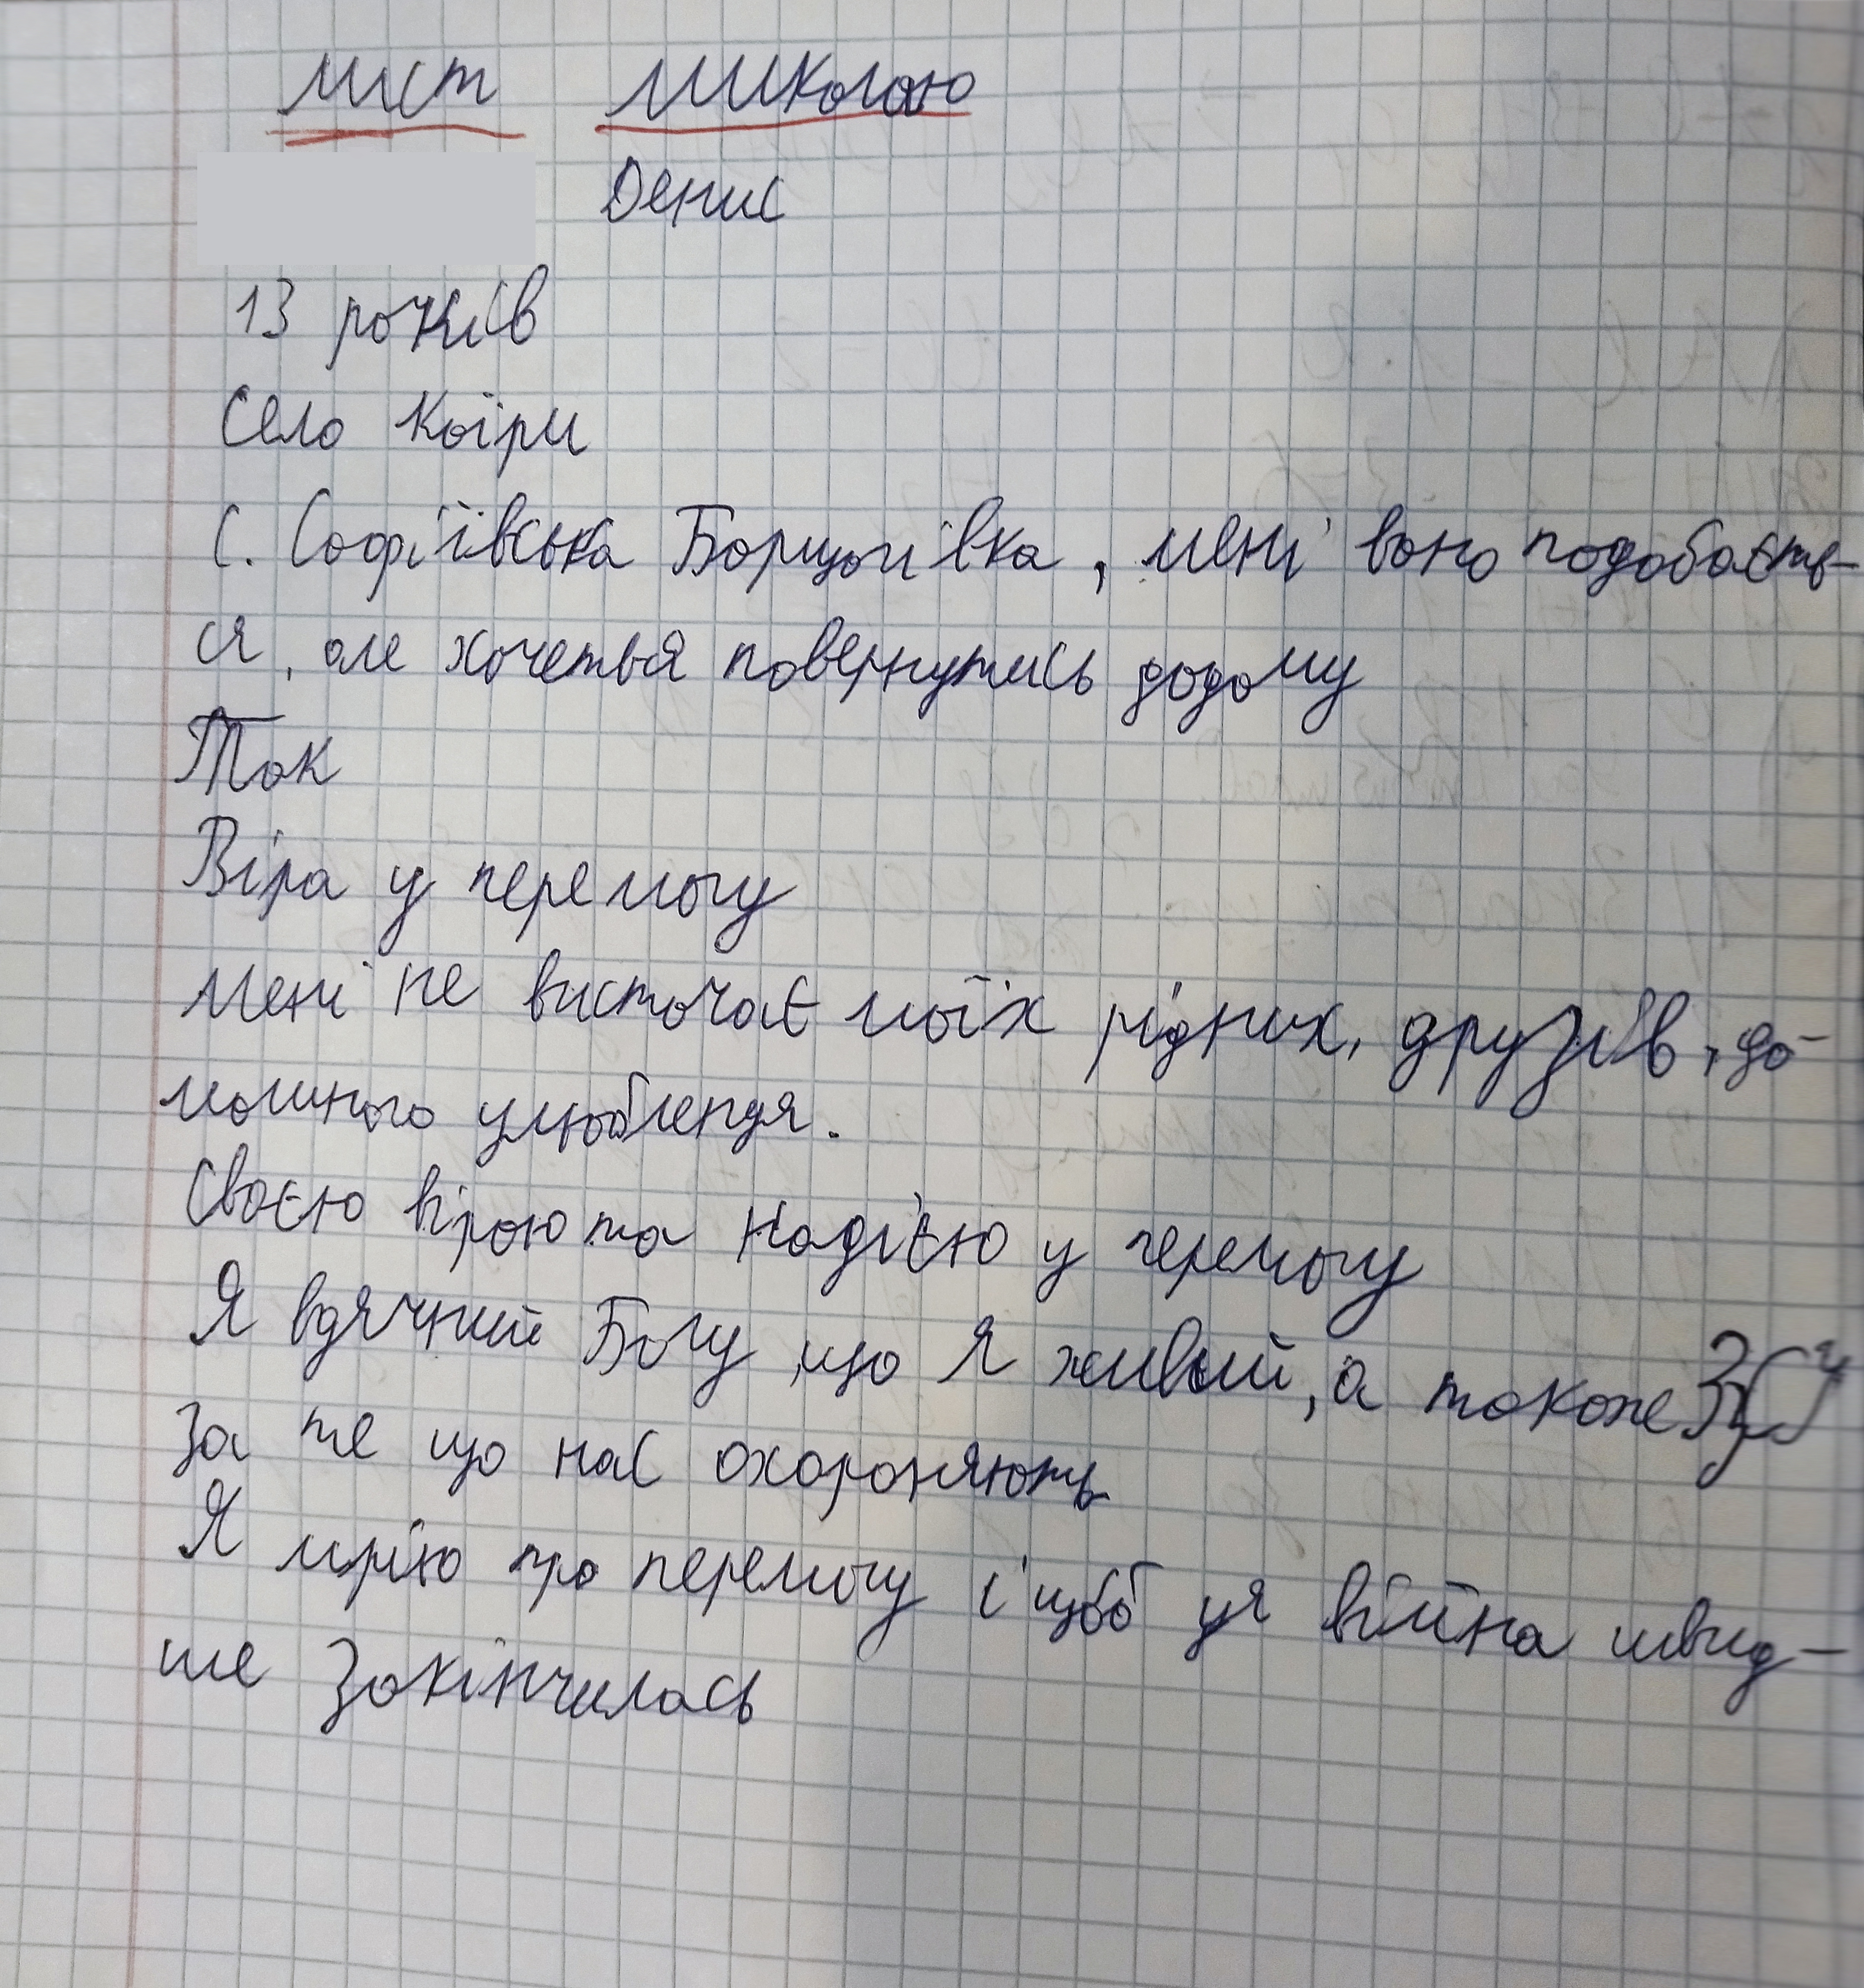 лист Миколаю
Денис
13 років
Село Каїри
С. Софіївська Борщагівка, мені воно подобаєть-
ся, але хочеться повернутись додому
Так
Віра у перемогу
Мені не вистачає моїх рідних, друзів, до-
машнього улюбленця.
Своєю вірою та надією у перемогу
Я вдячний Богу, що я живий, а також ЗСУ
За те що нас охороняють
Я мрію про перемогу і щоб ця війна швид-
ше Закінчилась